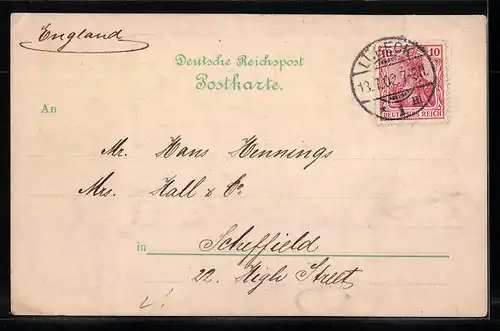 England
Deutsche Reichspost
Postkarte.
An
LÜBECK
10
13.1.02.7-8N.
DEUTSCHES REICH
Mr. Hans Hennings
Mrs. Hall & Co
in Scheffield
22. High Street